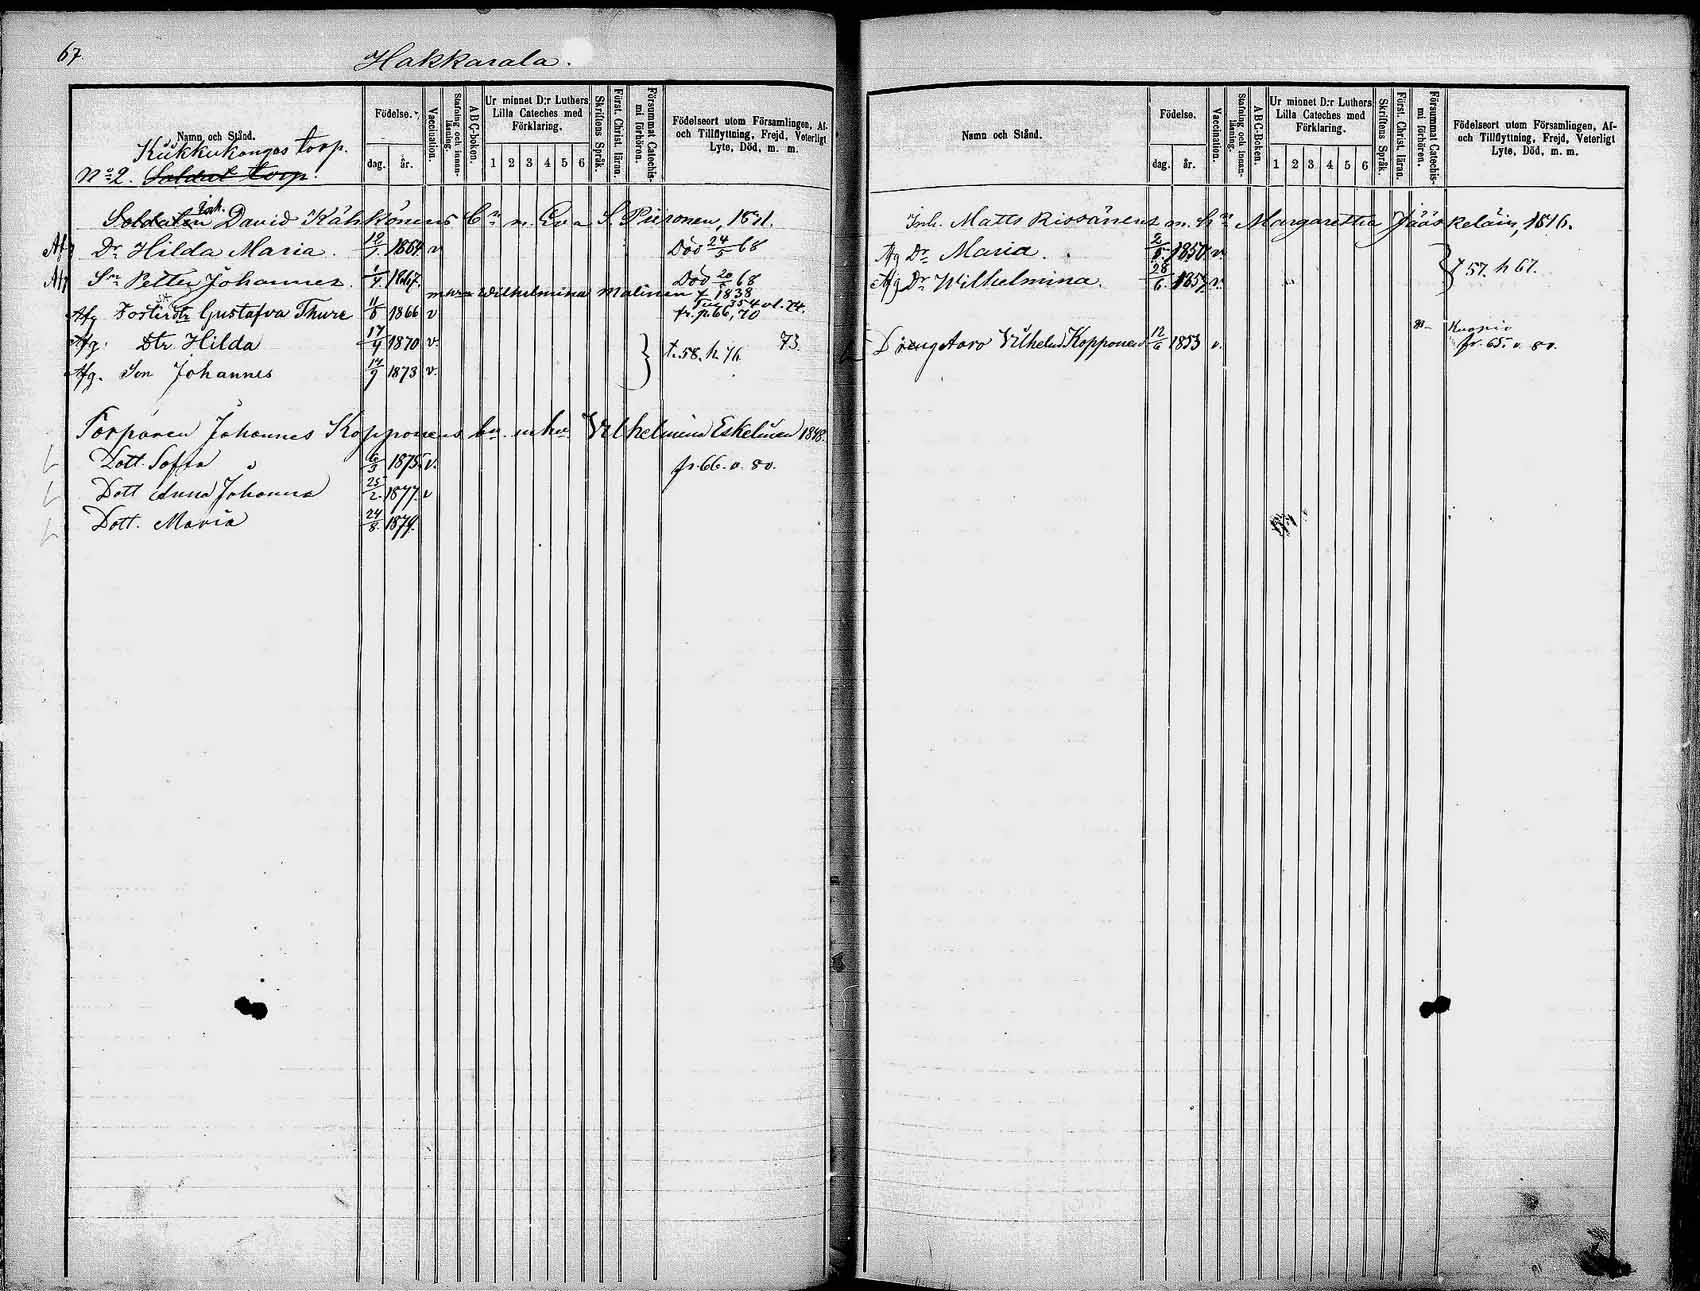 67
Hakkarala.
Namn och Stånd.
Kukkukangas torp.
No 2. Soldat torp.
Födelse.
dag. år.
Vaccination.
Stafning och innan-läsning.
A B C-boken.
Ur minnet D:r Luthers Lilla Cateches med Förklaring.
1 2 3 4 5 6
Skriftens Språk.
Först. Christ. läran.
Försummat Catechis-mi förhören.
Födelseort utom Församlingen, Af- och Tillflyttning, Frejd, Veterligt Lyte, Död, m. m.
Soldaten David Kähkönens Bn m. Eva S. Piironen, 1831.
Dr Hilda Maria. 1864 v Död 24/5 68
Sn Petter Johannes. 1867. Död 20/5 68
m hu Wilhelmina Malinen f 1838
Afg Gustafva Thure 11/8 1866 v fr. p. 66, 70
Afg. Dtr Hilda 17/9 1870 v. 73
t. 58. h 76.
Afg. Son Johannes 1873 v.
Torparen Johannes Kopponens bn. m hu. Vilhelmina Eskelinen 1848.
Dott. Sofia 6/3 1875 v. fr. 66. v. 80.
Dott Anna Johanna 25/2 1877. v
Dott. Maria 24/8 1879.
Namn och Stånd.
Födelse.
dag. år.
Vaccination.
Stafning och innan-läsning.
A B C-Boken.
Ur minnet D:r Luthers Lilla Cateches med Förklaring.
1 2 3 4 5 6
Skriftens Språk.
Först. Christ. läran.
Försummat Catechis-mi förhören.
Födelseort utom Församlingen, Af- och Tillflyttning, Frejd, Veterligt Lyte, Död, m. m.
Inh. Matts Rissanens m. hu Margaretha Jääskeläin, 1816.
Afg Dr Maria. 1850 v.
t 57. h 67.
Afg Dr Wilhelmina. 28/6 1857 v.
Dreng Aaro Vilhelm Kopponen 12/6 1853 v. Kuopio
fr. 65. v. 80.